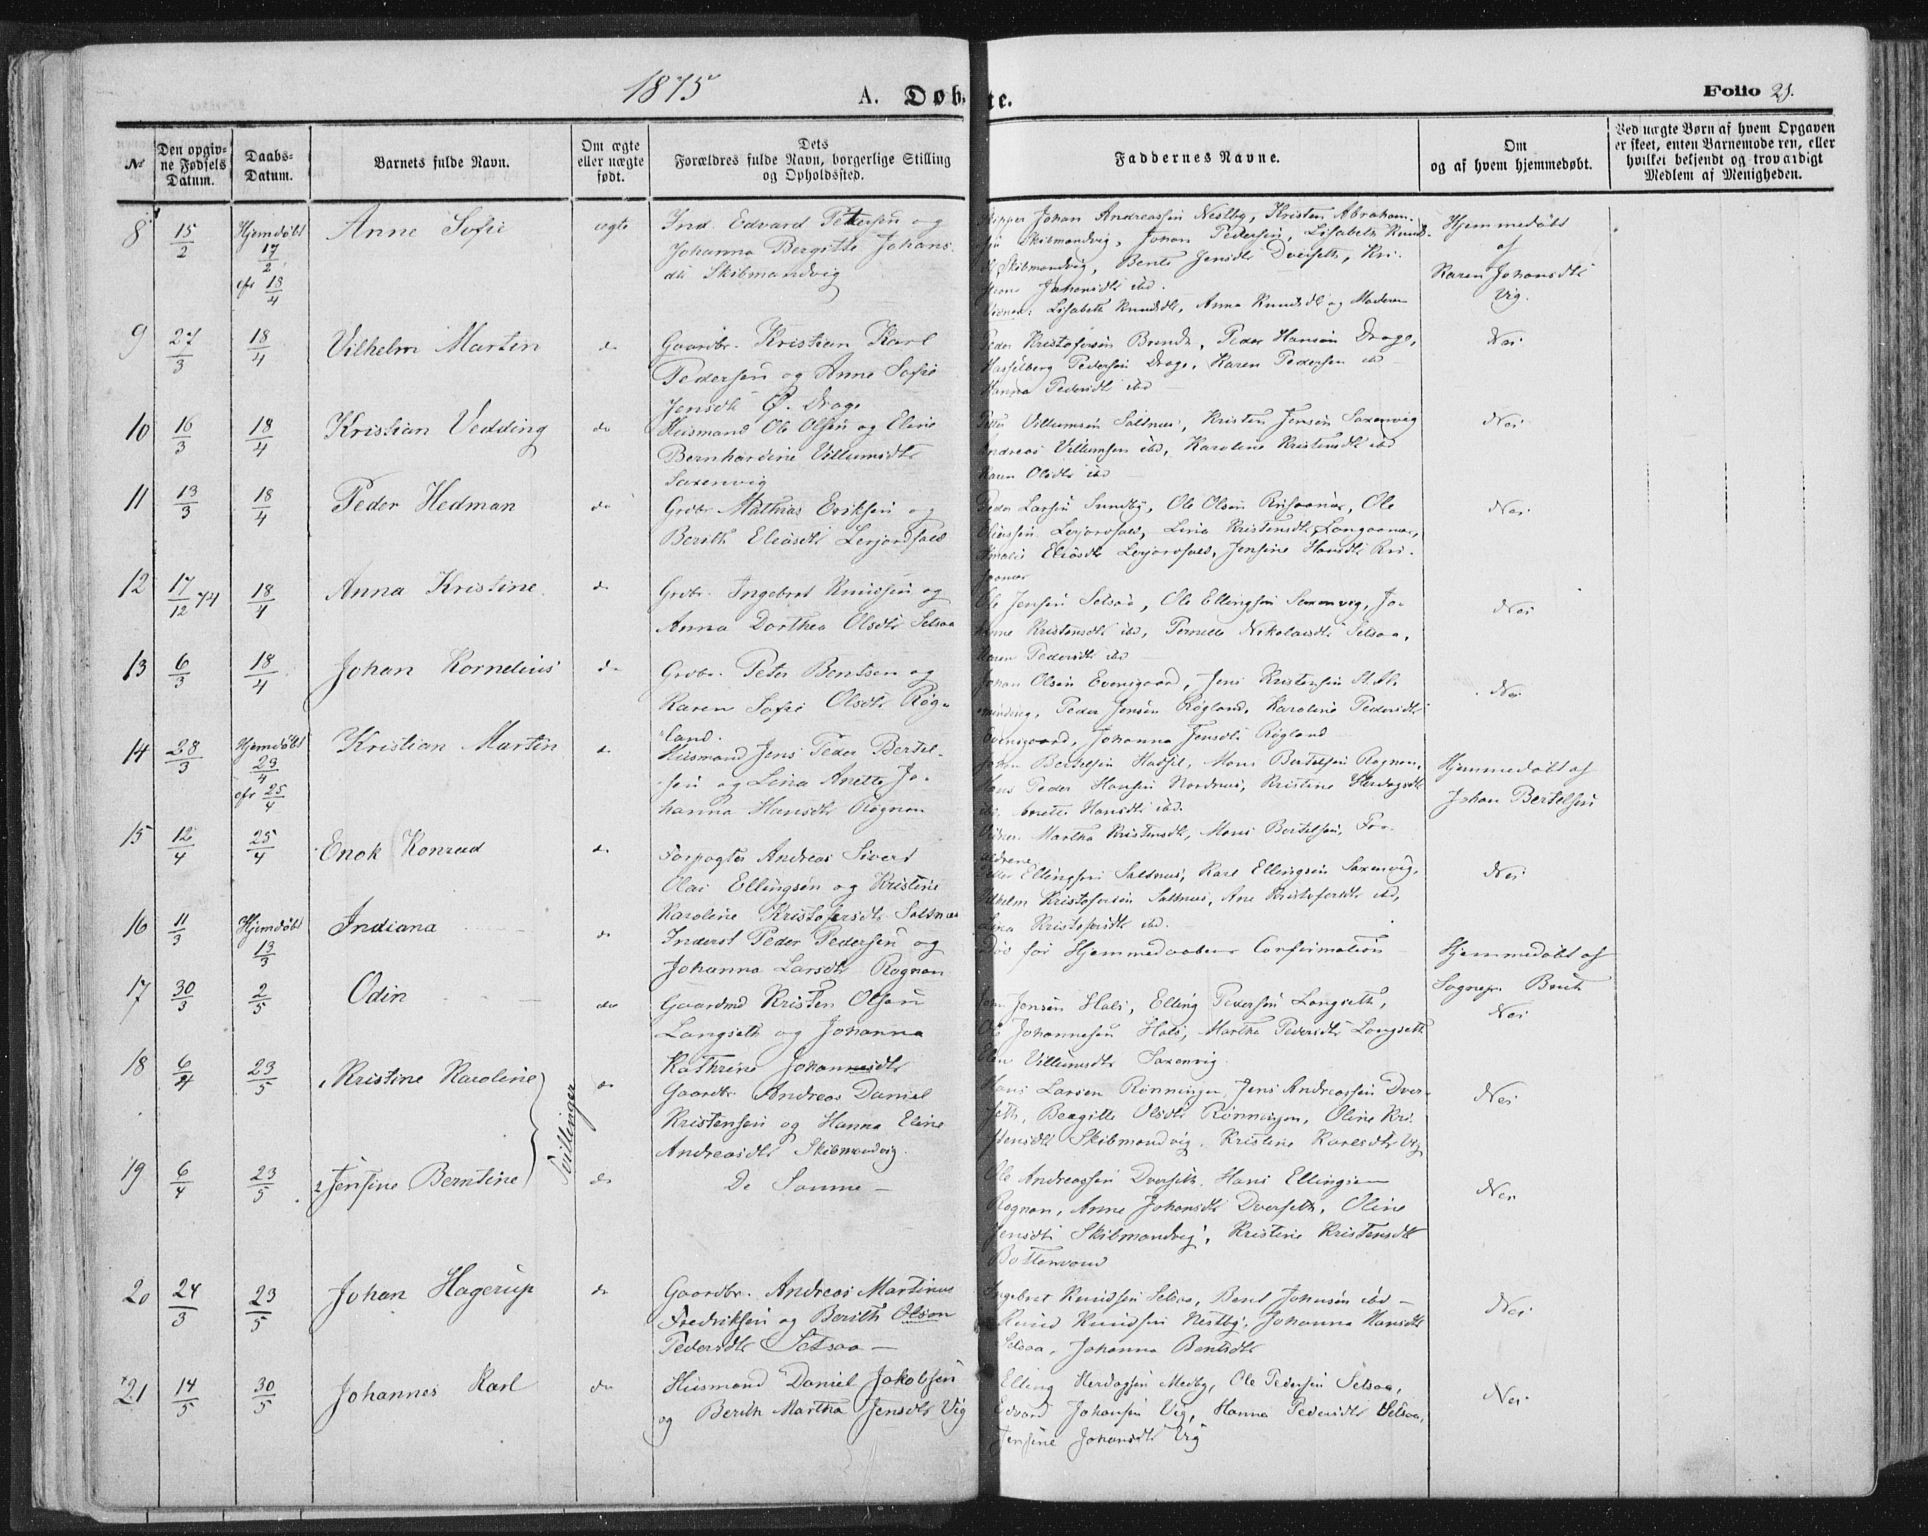 1875
A. Døbte.
Folio 21.
No
Den opgiv-
ne Fødsels
Datum.
Daabs-
Datum.
Barnets fulde Navn.
Om ægte
eller uægte
født.
Dets
Forældres fulde Navn, borgerlige Stilling
og Opholdssted.
Faddernes Navne.
Om
og af hvem hjemmedøbt.
Ved uægte Børn af hvem Opgaven
er skeet, enten Barnemoderen, eller
hvilket bekjendt og troværdigt
Medlem af Menigheden.
8 15/2 Hjemdøbt 17/2 18/4 Anne Sofie ægte
Ind. Edvard Petersen og
Johanna Bergitte Johans-
dtr Skibmandvig
Johan Andreassen Nestby, Kristen Abraham-
Skibmandvig, Johan Pedersen, Lisabeth Knuds-
Skibmandvig, Bente Jensdtr Dverseth, Kri-
Johansdtr ibd.
Lisabeth Knudsdtr, Anna Knudsdtr og Moderen
Hjemmedøbt
af
Karen Johansdtr
Vig.
9 27/3 18/4 Vilhelm Martin do
Gaardbr. Kristian Karl
Pedersen og Anne Sofie
Jensdtr Ø. Drage
Peder Kristofersen Drage, Peder Hansen Drage,
Hasselberg Pedersen Drage, Karen Pedersen ibd
Hanna Pedersdtr ibd
Nei
10 16/3 18/4 Kristian Vedding do
Husmand Ole Olsen og Eline
Bernhardine Villumsdtr
Saxenvig
Peter Villumsen Saltnes, Kristen Jensen Saxenvig
Andreas Villumsen ibd, Karoline Kristensdtr ibd
Karen Olsdtr ibd
Nei
11 13/3 18/4 Peder Hedman do
Grdbr. Mathias Eriksen og
Berith Eliasdtr Lerjordfald
Peder Larsen Sundby, Ole Olsen Rusaanes, Ole
Eliassen Lerjordfald, Lina Kristensdtr Longaanes,
Eliasdtr Lerjordfald, Jensine Hansdtr Ru-
saanes
Nei
12 17/12 74 18/4 Anna Kristine do
Grdbr. Ingebret Knudsen og
Anna Dorthea Olsdtr Setsaa
Ole Jensen Setsaa, Ole Ellingsen Saxenvig, Jo-
hanne Kristensdtr ibd, Pernelle Nikolaisdtr Setsaa,
Karen Pedersdtr ibd
Nei
13 6/3 18/4 Johan Kornelius do
Grdbr. Peter Bentsen og
Karen Sofie Olsdtr Røg-
land.
Johan Olsen Evensgaard, Jens Kristensen Skib-
mandvig, Peder Jensen Røgland, Karoline Pedersdtr
Evensgaard, Johanna Jensdtr Røgland
Nei
14 28/3 Hjemdøbt 23/4 25/4 Kristian Martin do
Husmand Jens Peder Bertel-
sen og Lina Anette Jo-
hanna Hansdtr Rognan
Johan Bertelsen Hassel, Mons Bertelsen Rognan,
Hans Peder Hansen Nordnes, Kristine Herdagsdtr
ibd, Hansdtr ibd.
Martha Kristensdtr, Mons Bertelsen, For-
ældrene
Hjemmedøbt af
Johan Bertelsen
15 12/4 25/4 Enok Konrad do
Forpagter Andreas Sivert
Olai Ellingsen og Kristine
Karoline Kristofersdtr Saltnes
Peder Ellingsen Saltnes, Karl Ellingsen Saxenvig,
Vilhelm Kristofersen Saltnes, Ane Kristofersdtr ibd,
Lina Kristofersdtr ibd.
Nei
16 11/3 Hjemdøbt 13/3 Indiana do
Inderst Peder Pedersen og
Johanna Larsdtr Rognan
Død før Hjemmedaabens Confirmation
Hjemmedøbt af
Sognepr. Bruch
17 30/3 2/5 Odin do
Gaardmd Kristen Olsen
Langseth og Johanna
Kathrine Johannesdtr
Jensen Hals, Elling Pedersen Langseth,
Ole Johannesen Hals, Martha Pedersdtr Langseth
Elen Villumsdtr Saxenvig.
Nei
18 6/4 23/5 1, Kristine Karoline do
Tvillinger
Gaardbr. Andreas Daniel
Kristensen og Hanna Eline
Andreasdtr Skibmandvig.
Hans Larsen Rønningen, Jens Andreassen Dver-
seth, Bergitte Olsdtr Rønningen, Oline Kri-
stensdtr Skibmandvig, Kristine Karlsdtr Vig
Nei
19 6/4 23/5 2 Jensine Berntine do
De Samme –
Ole Andreassen Dverseth, Hans Ellingsen
Rognan, Anne Johansdtr Dverseth, Oline
Jensdtr Skibmandvig, Kristine Kristensdtr
Bottenvand
Nei
20 24/3 23/5 Johan Hagerup do
Gaardbr. Andreas Martinus
Fredriksen og Berith Olson
Pedersdtr Setsaa –
Ingebret Knudsen Setsaa, Bent Johnsen ibd –
Knud Knudsen Nestby, Johanna Hansdtr
Setsaa, Johanna Bentsdtr
Nei
21 14/5 30/5 Johannes Karl do
Husmand Daniel Jakobsen
og Berith Martha Jensdtr Vig
Elling Herdagsen Medby, Ole Pedersen Setsaa,
Edvard Johansen Vig, Hanna Pedersdtr Setsaa,
Jensine Johansdtr Vig
Nei